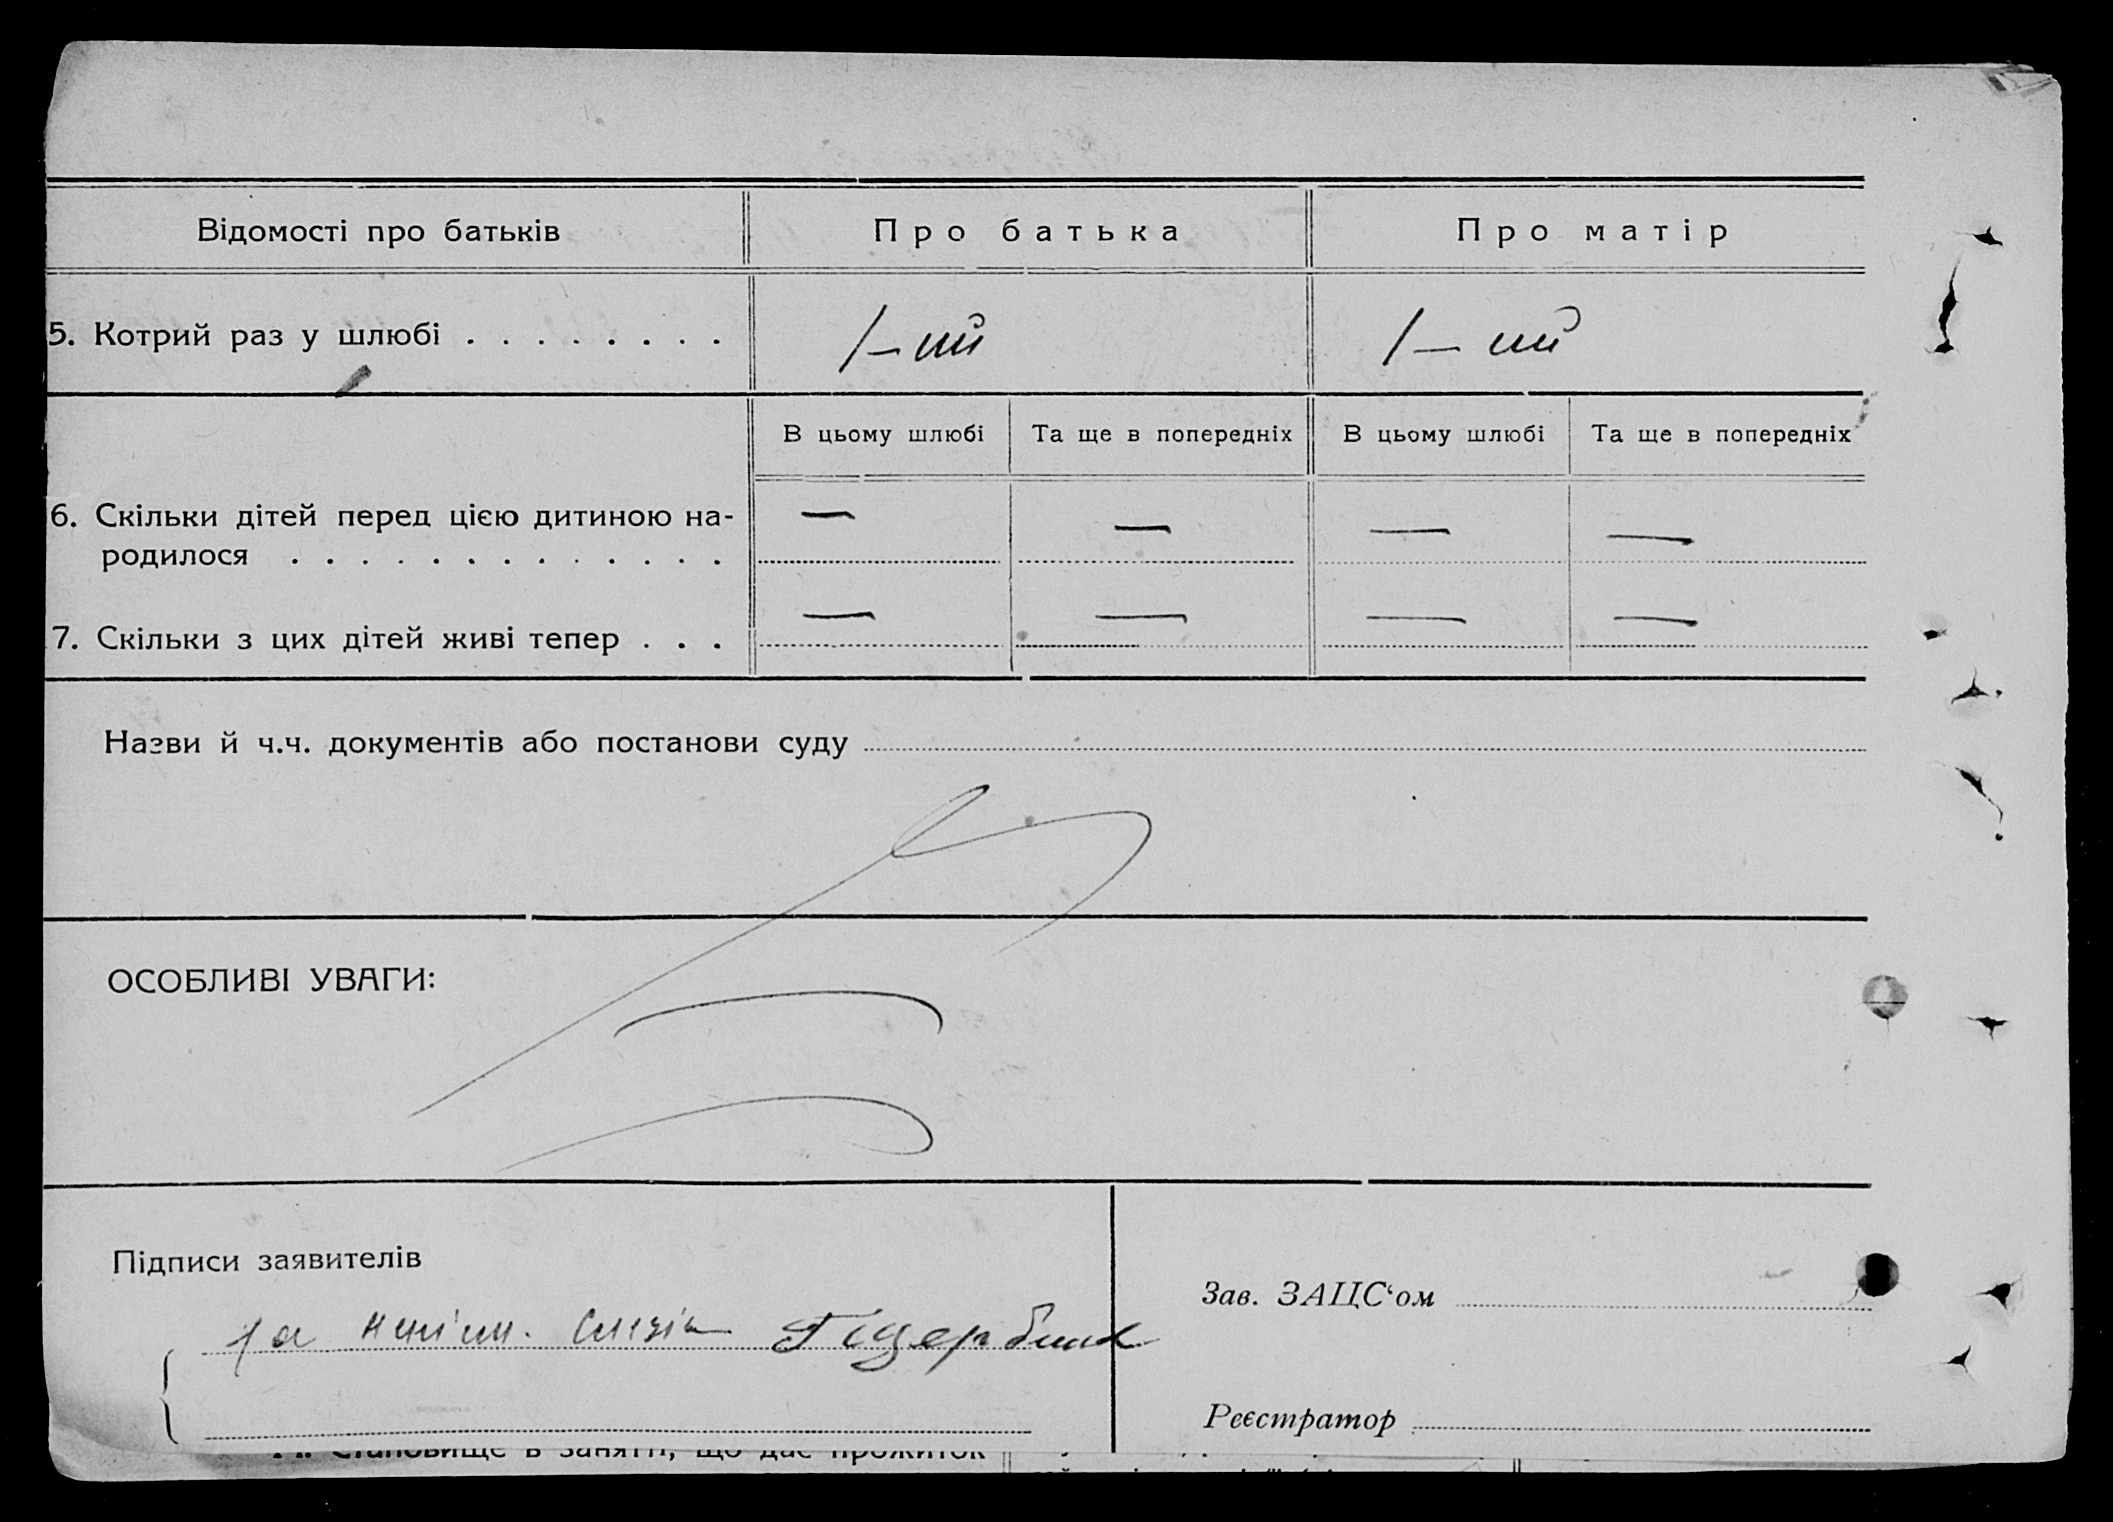 Відомості про батьків Про батька Про матір
5. Котрий раз у шлюбі . . . . . . . . 1-ий 1-ий
В цьому шлюбі Та ще в попередніх В цьому шлюбі Та ще в попередніх
6. Скільки дітей перед цією дитиною на- — — — —
родилося . . . . . . . . . . . . .
7. Скільки з цих дітей живі тепер . . . — — — —
Назви й ч.ч. документів або постанови суду
ОСОБЛИВІ УВАГИ:
Підписи заявителів
Зав. ЗАЦС‘ом
Реєстратор
Становище в занятті, що дає прожиток